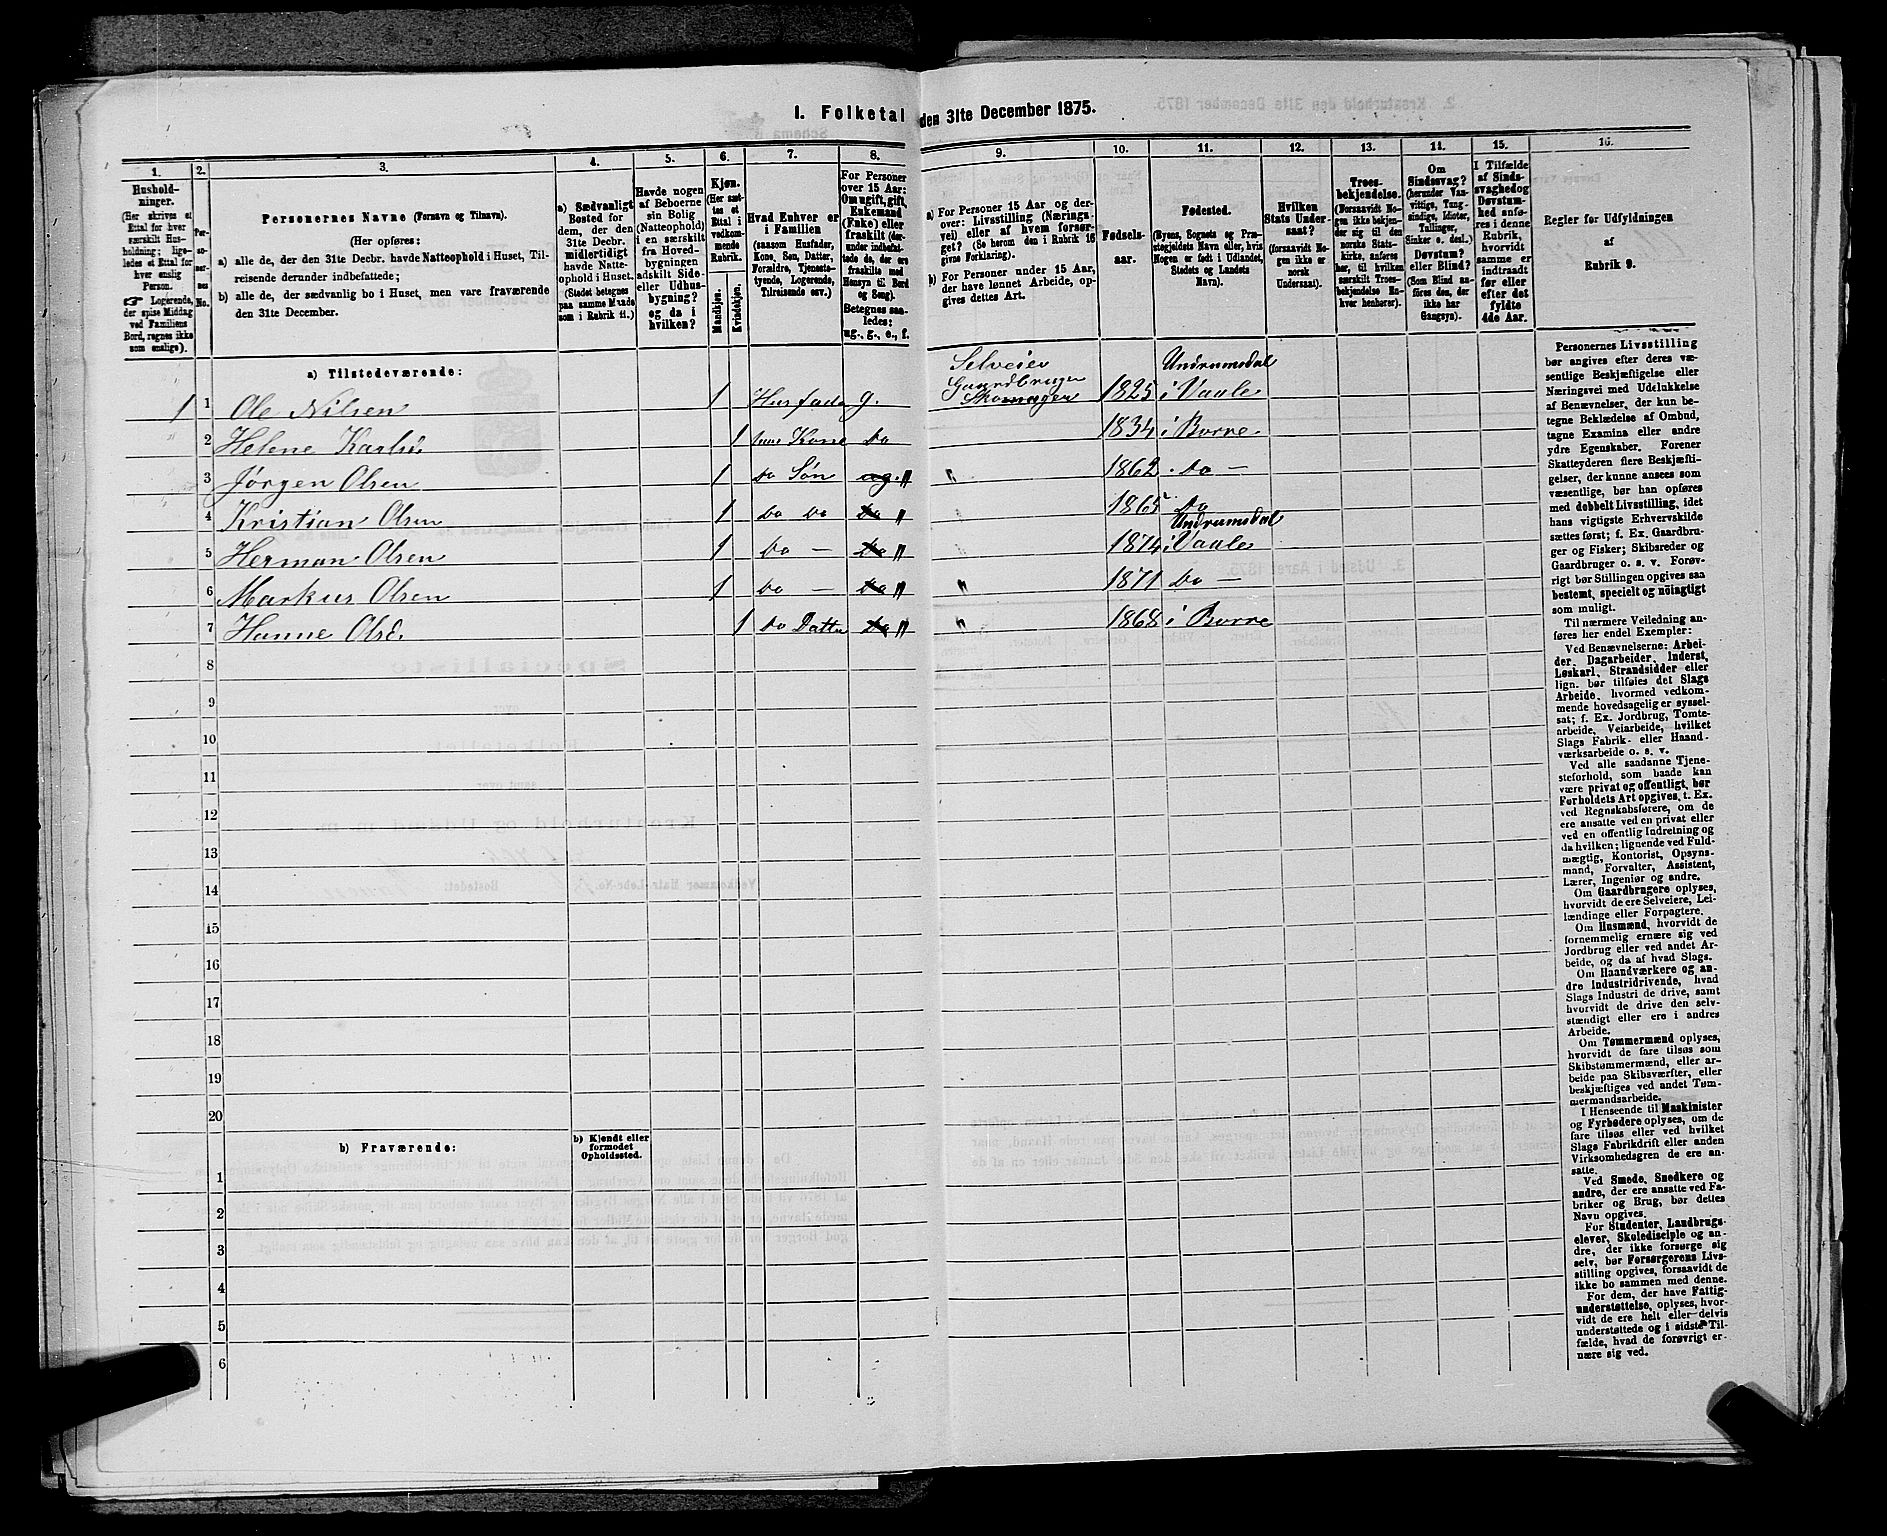 I. Folketal den 31te December 1875.
1.
Hushold-
ninger.
(Her skrives et
Ettal for hver
særskilt Hus-
holdning; lige-
ledes et Ettal for
hver enslig
Person.
☞ Logerende,
der spise Middag
ved Familiens
Bord, regnes ikke
som enslige).
2.
Per-
so-
ner-
nes
No.
3.
Personernes Navne (Fornavn og Tilnavn).
(Her opføres:
a) alle de, der den 31te Decbr. havde Natteophold i Huset, Til-
reisende derunder indbefattede;
b) alle de, der sædvanlig bo i Huset, men vare fraværende
den 31te December.
4.
a) Sædvanligt
Bosted for
dem, der den
31te Decbr.
midlertidigt
havde Natte-
ophold i Huset.
(Stedet betegnes
paa samme Maade
som i Rubrik 11.)
5.
Havde nogen
af Beboerne
sin Bolig
(Natteophold)
i en særskilt
fra Hoved-
bygningen
adskilt Side-
eller Udhus-
bygning?
og da i
hvilken?
6.
Kjøn.
(Her sæt-
tes et
Ettal i
vedkom-
mende
Rubrik.
Mandkjøn.
Kvindekjøn.
7.
Hvad Enhver er
i Familien
(saasom Husfader,
Kone, Søn, Datter,
Forældre, Tjeneste-
tyende, Logerende,
Tilreisende osv.)
8.
For Personer
over 15 Aar:
Om ugift, gift,
Enkemand
(Enke) eller
fraskilt (der-
under indbefat-
tede de, der ere
fraskilte med
Hensyn til Bord
og Seng).
Betegnes saa-
ledes:
ug., g., e., f.
9.
a) For Personer 15 Aar og der-
over: Livsstilling (Nærings-
vei) eller af hvem forsør-
get? (Se herom den i Rubrik 16
givne Forklaring).
b) For Personer under 15 Aar,
der have lønnet Arbeide, op-
gives dettes Art.
10.
Fødsels-
aar.
11.
Fødested.
(Byens, Sognets og Præ-
stegjeldets Navn eller, hvis
Nogen er født i Udlandet,
Stedets og Landets
Navn).
12.
Hvilken
Stats Under-
saat?
(forsaavidt No-
gen ikke er
norsk
Undersaat).
13.
Troes-
bekjendelse.
(Forsaavidt No-
gen ikke bekjen-
der sig til den
norske Stats-
kirke, anføres
her, til hvilken
særskilt Troes-
bekjendelse En-
hver henhører).
14.
Om
Sindssvag?
(herunder Van-
vittige, Tung-
sindige, Idioter,
Tullinger,
Sinker o. desl.)
Døvstum?
eller Blind?
(Som Blind an-
føres den, der
ikke har
Gangsyn).
15.
I Tilfælde
af Sinds-
svaghed og
Døvstum-
hed anfø-
res i denne
Rubrik,
hvorvidt
samme er
indtraadt
før eller
efter det
fyldte
4de Aar.
16.
Regler for Udfyldningen
af
Rubrik 9.
a) Tilstedeværende:
1 1 Ole Nilsen 1 Husfader g. Selveier Gaardbruger Skomager 1825 Undrumsdal i Vaale
2 Helene Karlsd. 1 hans Kone do 1834 i Borre
3 Jørgen Olsen 1 do Søn ug. " " 1862 . do –
4 Kristian Olsen 1 do do do " " 1865 do
5 Herman Olsen 1 do – do " " 1874 Undrumsdal i Vaale
6 Markus Olsen 1 do – do " " 1871 do –
7 Hanne Olsd. 1 do Datter do " " 1868 i Borre
8
9
10
11
12
13
14
15
16
17
18
19
20
b) Fraværende:
b) Kjendt eller
formodet
Opholdssted.
1
2
3
4
5
6
Personernes Livsstilling
bør angives efter deres væ-
sentlige Beskjæftigelse eller
Næringsvei med Udelukkelse
af Benævnelser, der kun be-
tegne Beklædelse af Ombud,
tagne Examina eller andre
ydre Egenskaber. Forener
Skatteyderen flere Beskjæfti-
gelser, der kunne ansees som
væsentlige, bør han opføres
med dobbelt Livsstilling, idet
hans vigtigste Erhvervskilde
sættes først; f. Ex. Gaardbru-
ger og Fisker; Skibsreder og
Gaardbruger o. s. v. Forøv-
rigt bør Stillingen opgives saa
bestemt, specielt og nöiagtigt
som muligt.
Til nærmere Veiledning an-
føres her endel Exempler:
Ved Benævnelserne: Arbei-
der, Dagarbeider, Inderst,
Løskarl, Strandsidder eller
lign. bør tilføies det Slags
Arbeide, hvormed vedkom-
mende hovedsagelig er syssel-
sat; f. Ex. Jordbrug, Tomte-
arbeide, Veiarbeide, hvilket
Slags Fabrik- eller Haand-
værksarbeide o. s. v.
Ved alle saadanne Tjene-
steforhold, som baade kan
være privat og offentligt, bør
Forholdets Art opgives, t. Ex.
ved Regnskabsførere, om de
ere ansatte ved en privat eller
ved en offentlig Indretning og
da hvilken; lignende ved Fuld-
mægtig, Kontorist, Opsyns-
mand, Forvalter, Assistent,
Lærer, Ingeniør og andre.
Om Gaardbrugere oplyses,
hvorvidt de ere Selveiere, Lei-
lændinge eller Forpagtere.
Om Husmænd, hvorvidt de
fornemmelig ernære sig ved
Jordbrug eller ved andet Ar-
beide, og da af hvad Slags.
Om Haandværkere og an-
dre Industridrivende, hvad
Slags Industri de drive, samt
hvorvidt de drive den selv-
stændigt eller ere i andres
Arbeide.
Om Tømmermænd oplyses,
hvorvidt de fare tilsøs som
Skibstømmermænd, eller ar-
beide paa Skibsværfter, eller
beskjæftiges ved andet Tøm-
mermandsarbeide.
I Henseende til Maskinister
og Fyrbødere oplyses, om de
fare tilsøs eller ved hvilket
Slags Fabrikdrift eller anden
Virksomhedsgren de ere an-
satte.
Ved Smede, Snedkere og
andre, der ere ansatte ved Fa-
briker og Brug, bør dettes
Navn opgives.
For Studenter, Landbrugs-
elever, Skoledisciple og an-
dre, der ikke forsørge sig
selv, bør Forsørgerens Livs-
stilling opgives, forsaavidt de
ikke bo sammen med denne.
For dem, der have Fattig-
understøttelse, oplyses, hvor-
vidt de ere helt eller delvis
understøttede og i sidste Til-
fælde, hvad de forøvrigt er-
nære sig ved.